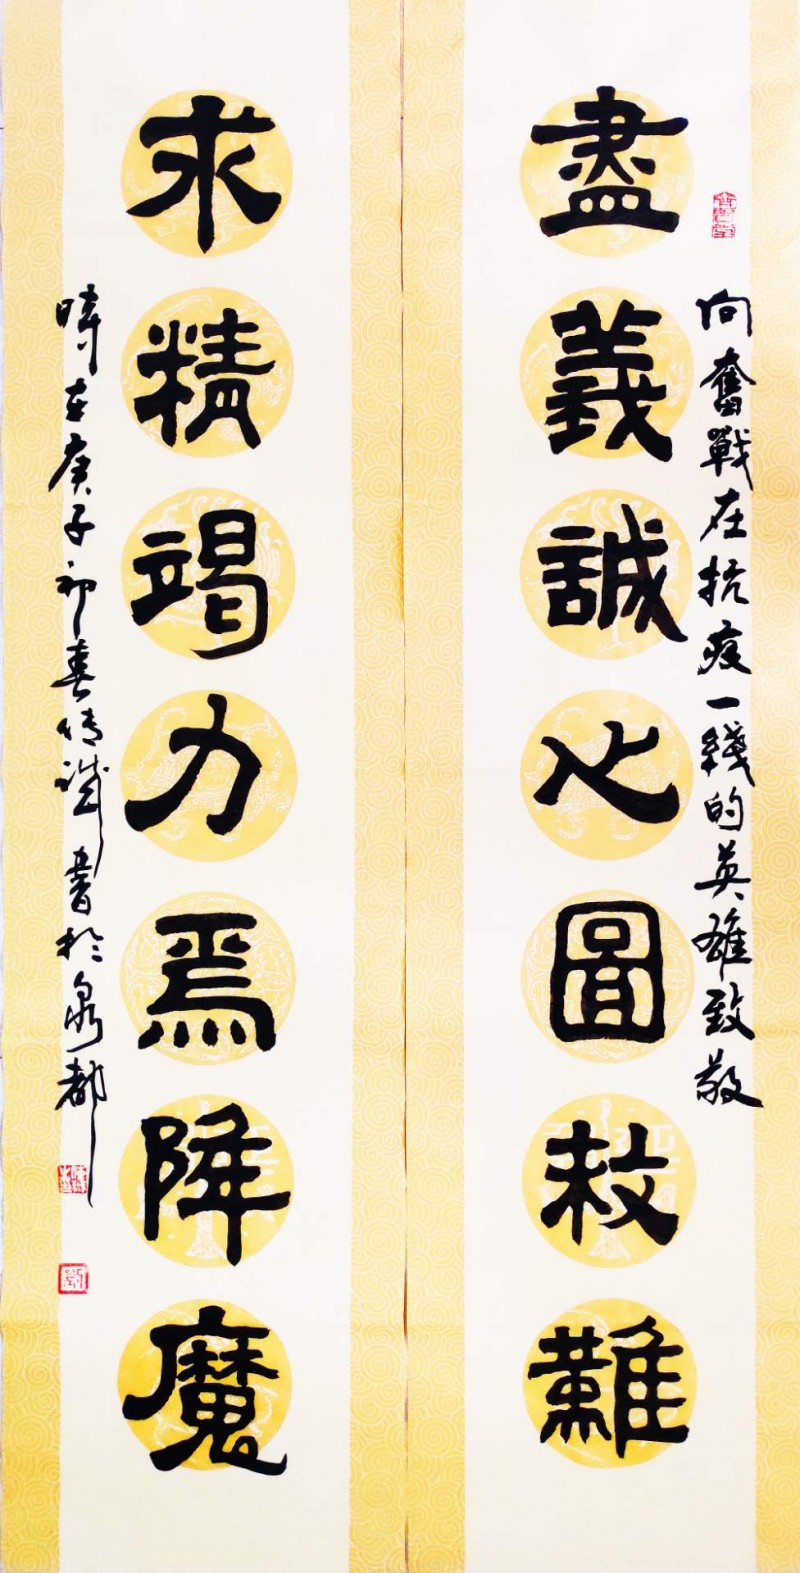 向奮戰在抗疫一綫的英雄致敬
盡義誠心圖救難
求精竭力焉降魔
時在庚子初春書於泉都